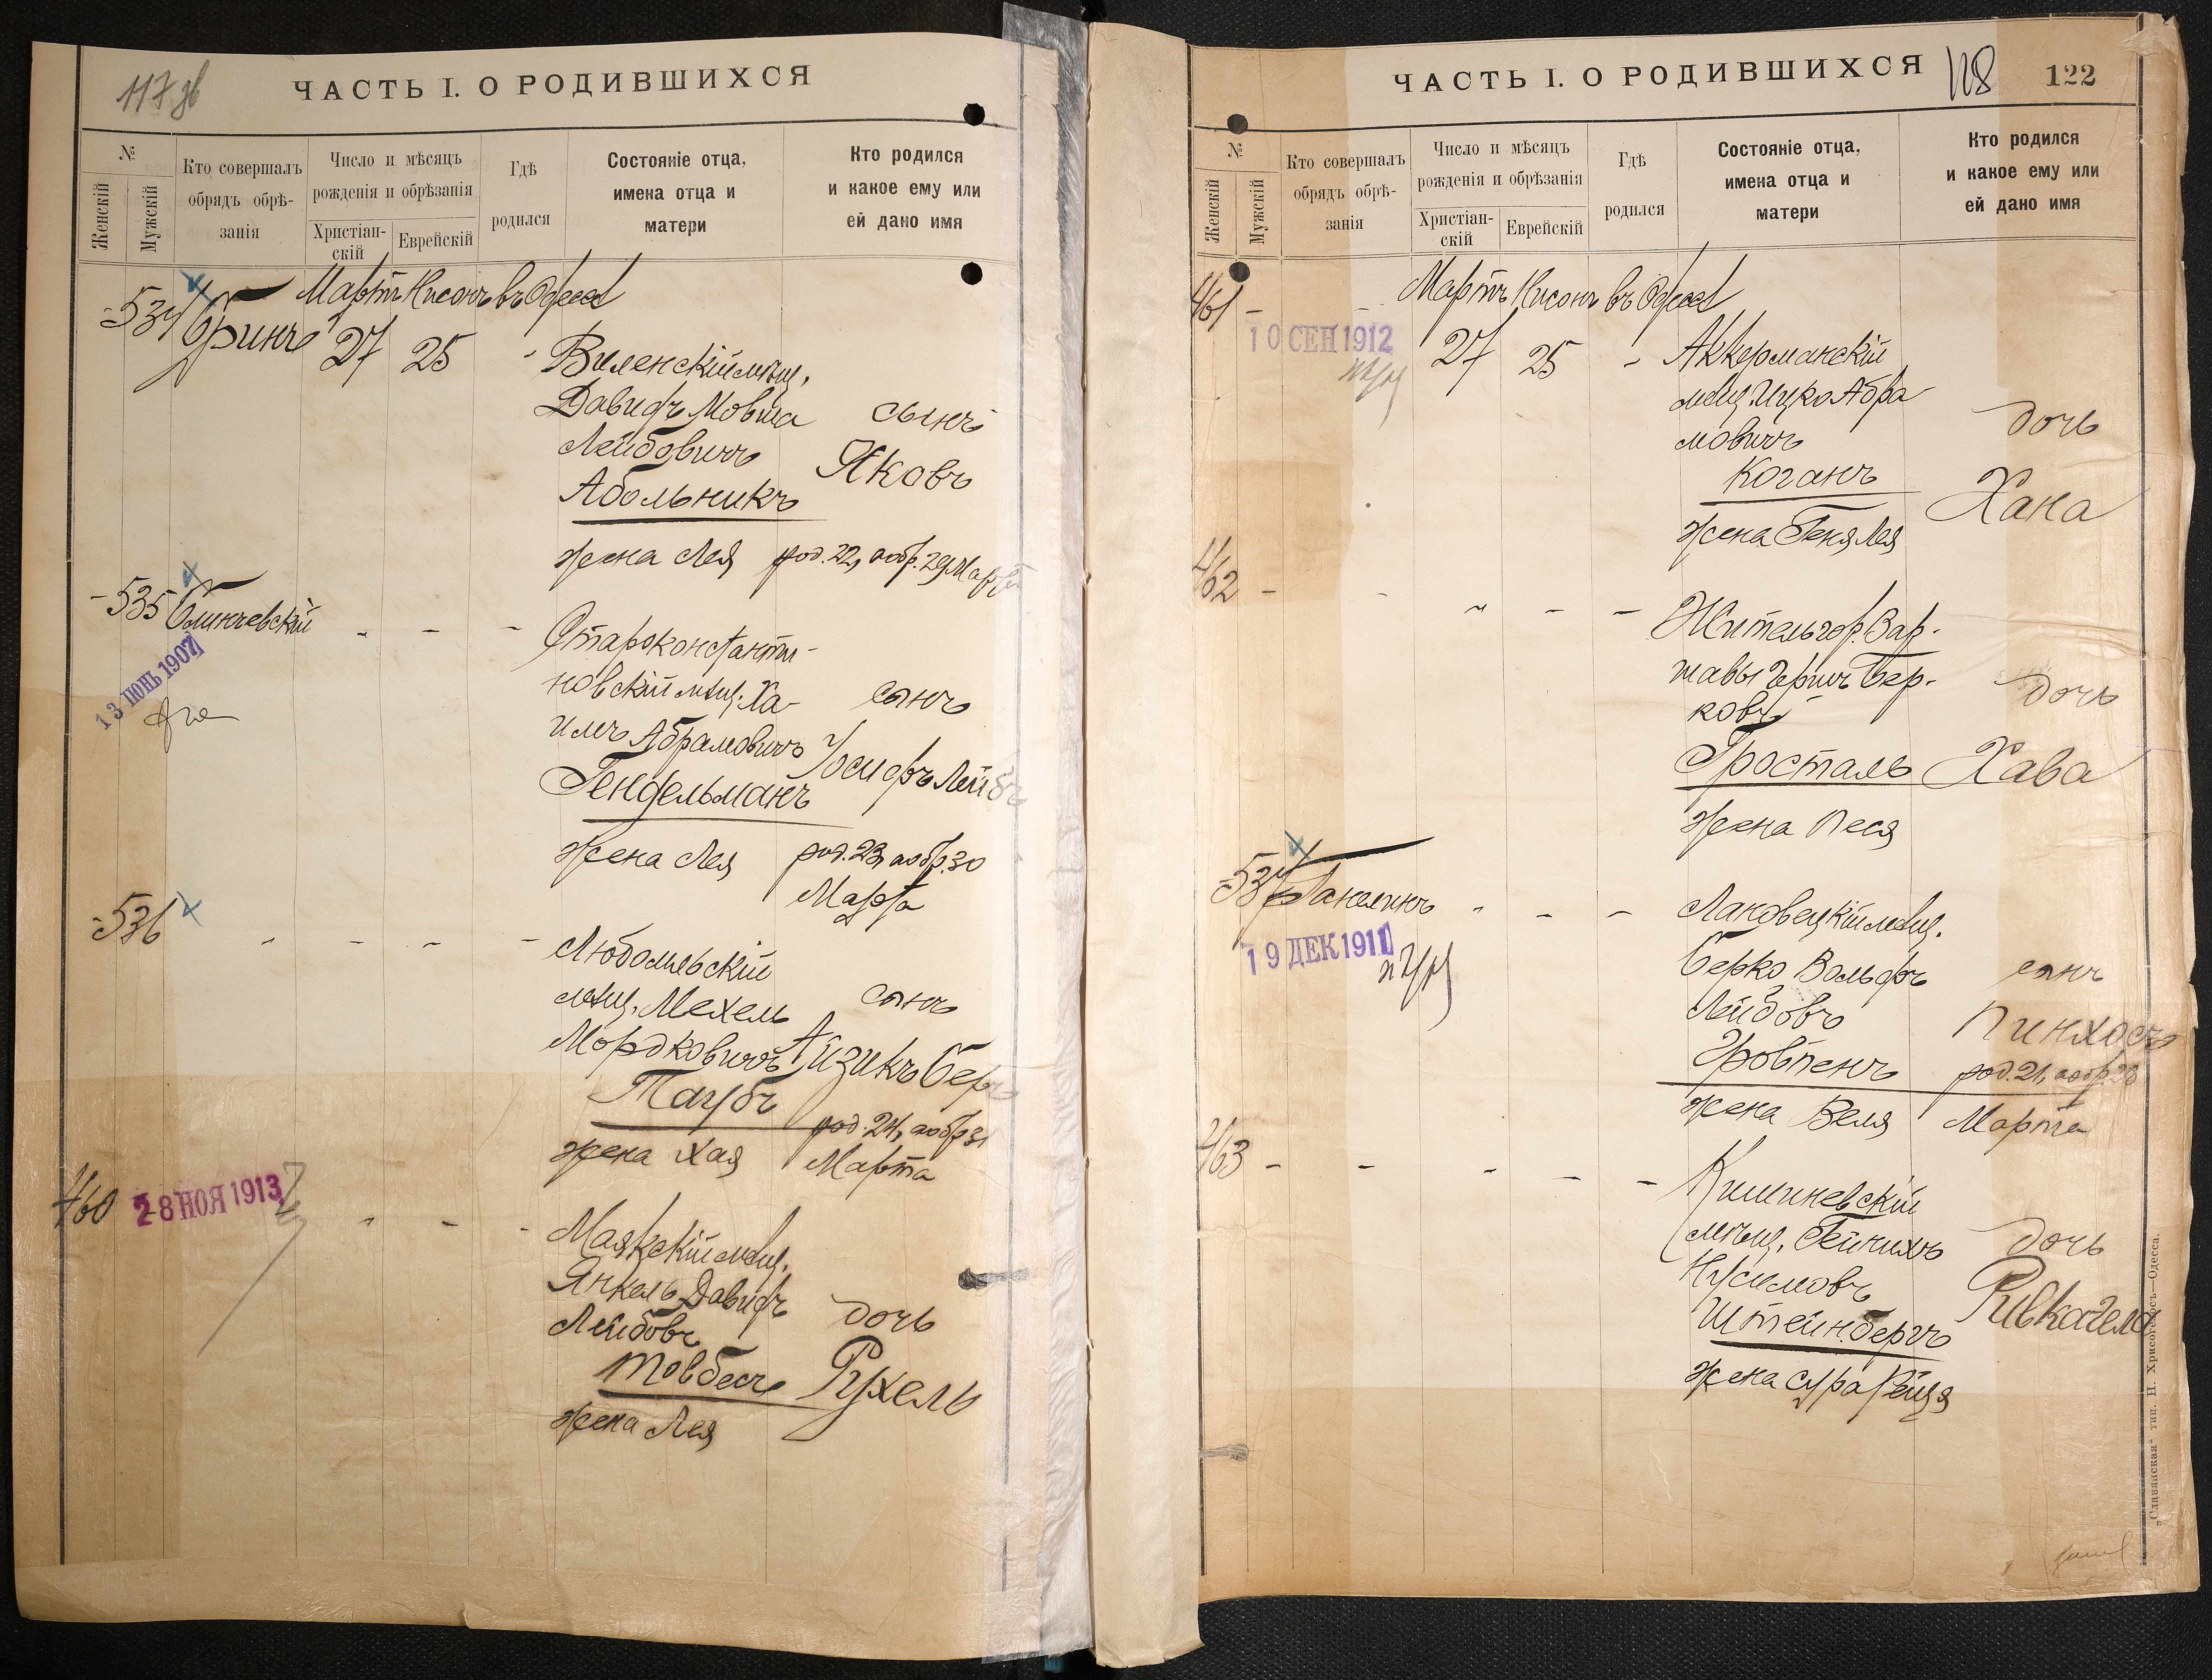 117 об
ЧАСТЬ I. О РОДИВШИХСЯ
№
Женскій
Мужскій
Кто совершалъ
обрядъ обрѣ-
занія
Число и мѣсяцъ
рожденія и обрѣзанія
Христіан-
скій
Еврейскій
Гдѣ
родился
Состояніе отца,
имена отца и
матери
Кто родился
и какое ему или
ей дано имя
Мартъ Нисонъ въ Одессѣ
- 534
27 25 -
Виленскій мѣщ.
Давидъ Мовша
Лейбовичъ
Абольникъ
жена Лея
сынъ
Яковъ
род. 22, а обр. 29 Марта
- 535
13 ІЮНЬ 1907
- - -
Староконстанти-
новскій мѣщ. Ха-
имъ Абрамовичъ
Гендельманъ
жена Лея
сынъ
Іосифъ Лейбъ
род. 23, а обр. 30
Марта
- 536
- - - -
Любомльскій
мѣщ. Мехель
Мордковичъ
Таубъ
жена Хая
сынъ
Айзикъ Беръ
род. 24, а обр 31
Марта
460
28 НОЯ 1913
- - -
Маякскій мѣщ.
Янкель Давидъ
Лейбовъ
жена Лея
дочь
Рухель
ЧАСТЬ I. О РОДИВШИХСЯ
118
122
№
Женскій
Мужскій
Кто совершалъ
обрядъ обрѣ-
занія
Число и мѣсяцъ
рожденія и обрѣзанія
Христіан-
скій
Еврейскій
Гдѣ
родился
Состояніе отца,
имена отца и
матери
Кто родился
и какое ему или
ей дано имя
Мартъ Нисонъ въ Одессѣ
461 - -
10 СЕН 1912
27 25 -
Аккерманскій
мѣщ. Ицко Абра
мовичъ
Коганъ
жена Геня Лея
дочь
Хана
462 - - - - -
Житель гор. Вар-
шавы Герш Бер-
ковъ
Гросталь
жена Песя
дочь
Хава
- 537
19 ДЕК 1911
- - -
мѣщ.
Берко Вольфъ
Лейбовъ
жена Веля
сынъ
Пинхосъ
род. 21, а обр 28
Марта
463 - - - - -
Кишиневскій
мѣщ. Гейнихъ
Нусимовъ
Штейнбергъ
жена Сура Рейзя
дочь
Ривка
„Славянская" тип. Н. Хрисогелосъ—Одесса.